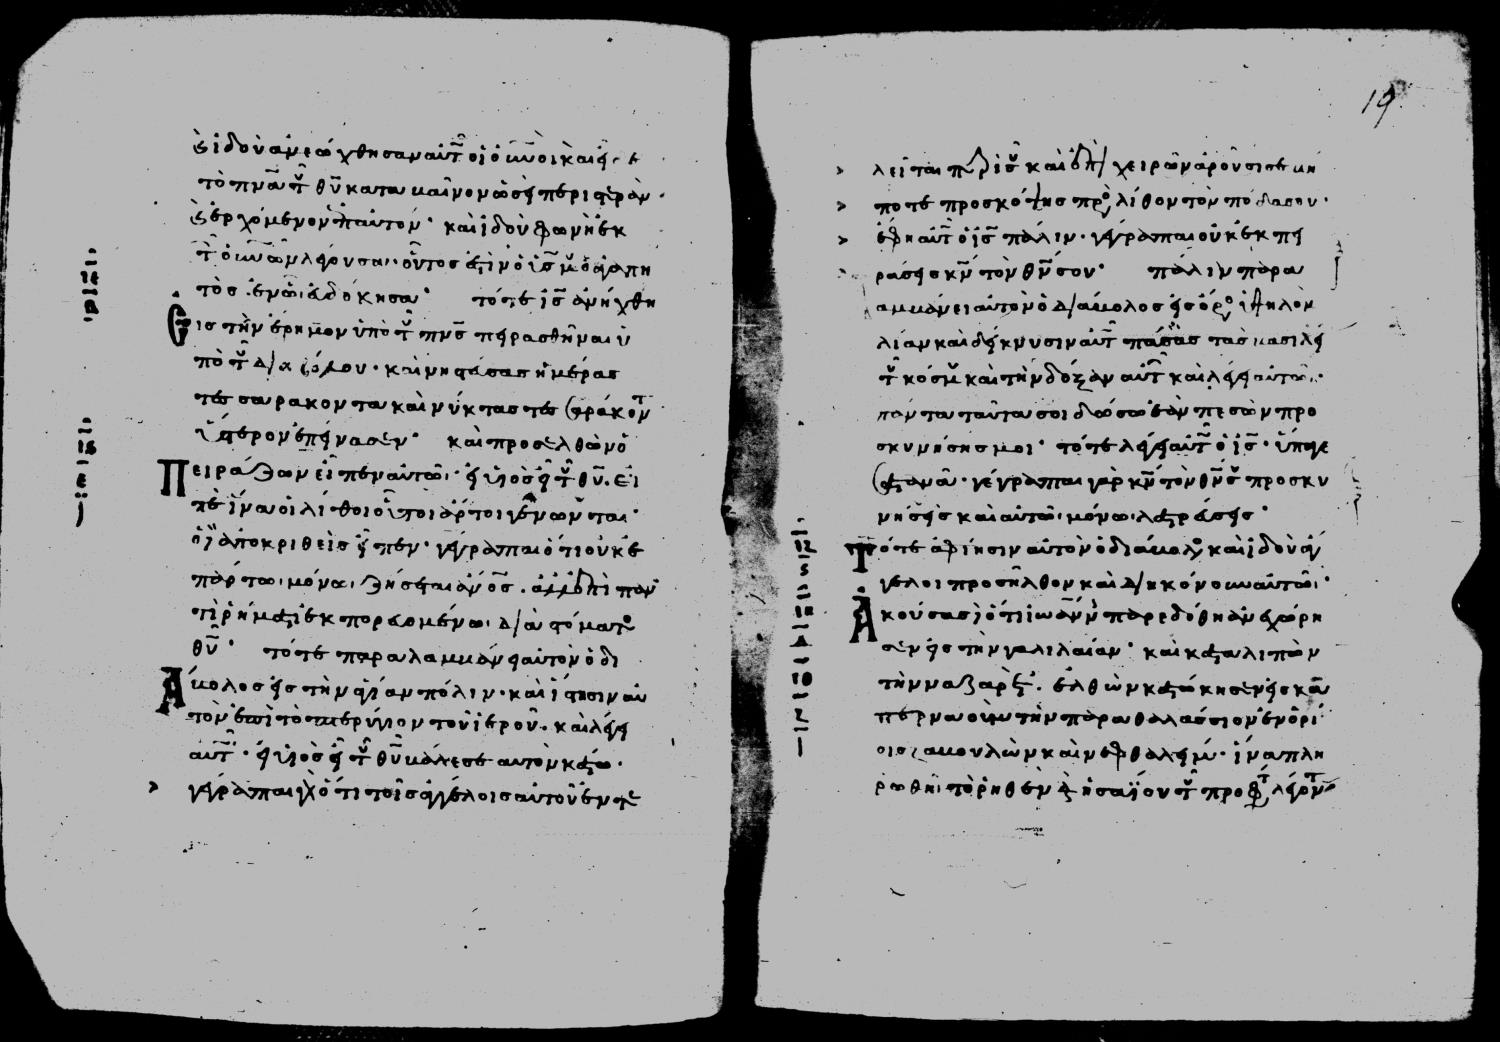 ἰδοὺ ἀνεώχθησαν αὐτ οἱ οὐνοι καὶ
τὸ πνα τοῦ θυ καταβαῖνον ὡσεὶ περιστερὰν
ἐρχόμενον ἐπ αὐτόν· καὶ ἰδοὺ φωνὴ ἐκ
τ οὐνων λέγουσα· οὗτος ἐστὶν ὁ υἱσ μου ὁ ἀγαπη
τὸς ἐν ὧ εὐδόκησα· τότε ὁ ισ ἀνήχθη
εἰς τὴν ἔρημον ὑπὸ τοῦ πνσ πειρασθῆναι ὑ
πὸ τοῦ διαβόλου· καὶ νηστεύσασ ἡμέρασ
τεσσαράκοντα καὶ νύκτασ τεσσαράκοντ
ὕστερον ἐπείνασεν· καὶ προσελθὼν ὁ
Πειράζων εἶπεν αὐτῶ· εἰ υἱὸσ εἶ τοῦ θυ· εἰ
πὲ ἵνα οἱ λίθοι οὗτοι ἄρτοι γένωνται·
ὁ δὲ ἀποκριθεὶσ εἶπεν· γέγραπται ὅτι οὐκ ἐ
π ἄρτω μόνω ζήσεται ἀνοσ· ἀλλ ἐπὶ παν
τὶ ῥήματι ἐκπορευομένω διὰ στόματοσ
θυ· τότε παραλαμβάνει αὐτὸν ὁ δι
άβολοσ εἰσ τὴν ἁγίαν πόλιν· καὶ ἵστησιν αὐ
τὸν ἐπὶ τὸ πτερύγιον τοῦ ἱεροῦ· καὶ λέγει
αὐτ· εἰ υἱὸσ εἶ τοῦ θυ βάλε σεαυτὸν κάτω·
γέγραπται γὰρ ὅτι τοῖσ ἀγγέλοισ αὐτοῦ ἐντε
19
λεῖται περὶ σοῦ καὶ ἐπὶ χειρῶν ἀροῦσί σε μή
ποτε προσκόψησ πρὸσ λίθον τὸν πόδα σου·
ἔφη αὐτ ὁ ισ πάλιν· γέγραπται οὐκ ἐκπει
ράσεισ κν τὸν θν σου· πάλιν παρα
λαμβάνει αὐτὸν ὁ διάβολοσ εἰσ ὄροσ ὑψηλὸν
λίαν καὶ δείκνυσιν αὐτ πάσασ τὰσ βασιλεί
τοῦ κόσμου καὶ τὴν δόξαν αὐτ καὶ λέγει αὐτῶ·
πάντα ταῦτα σοι δώσω ἐὰν πεσὼν προ
σκυνήσησ μοι· τότε λέγει αὐτ ὁ ισ· ὕπαγε
σατανᾶ· γέγραπται γάρ κν τὸν θν σου προσκυ
νήσεισ καὶ αὐτῶ μόνω λατρεύσεισ·
Τότε ἀφίησιν αὐτὸν ὁ διάβολοσ καὶ ἰδοὺ ἄγ
γελοι προσῆλθον καὶ διηκόνουν αὐτῶ·
Ἀκούσασ ὁ ισ ὅτι ἰωάννησ παρεδόθη ἀνεχώρη
σεν εἰσ τὴν γαλιλαίαν· καὶ καταλιπὼν
τὴν ναζαρὲτ· ἐλθὼν κατώκησεν εἰσ κα
περναοὺμ τὴν παραθαλασσίον ἐν ὁρί
οισ ζαβουλὼν καὶ νεφθαλείμ· ἵνα πλη
ρωθῆ τὸ ῥηθὲν διὰ ἡσαΐου τοῦ προφήτ λέγοντ